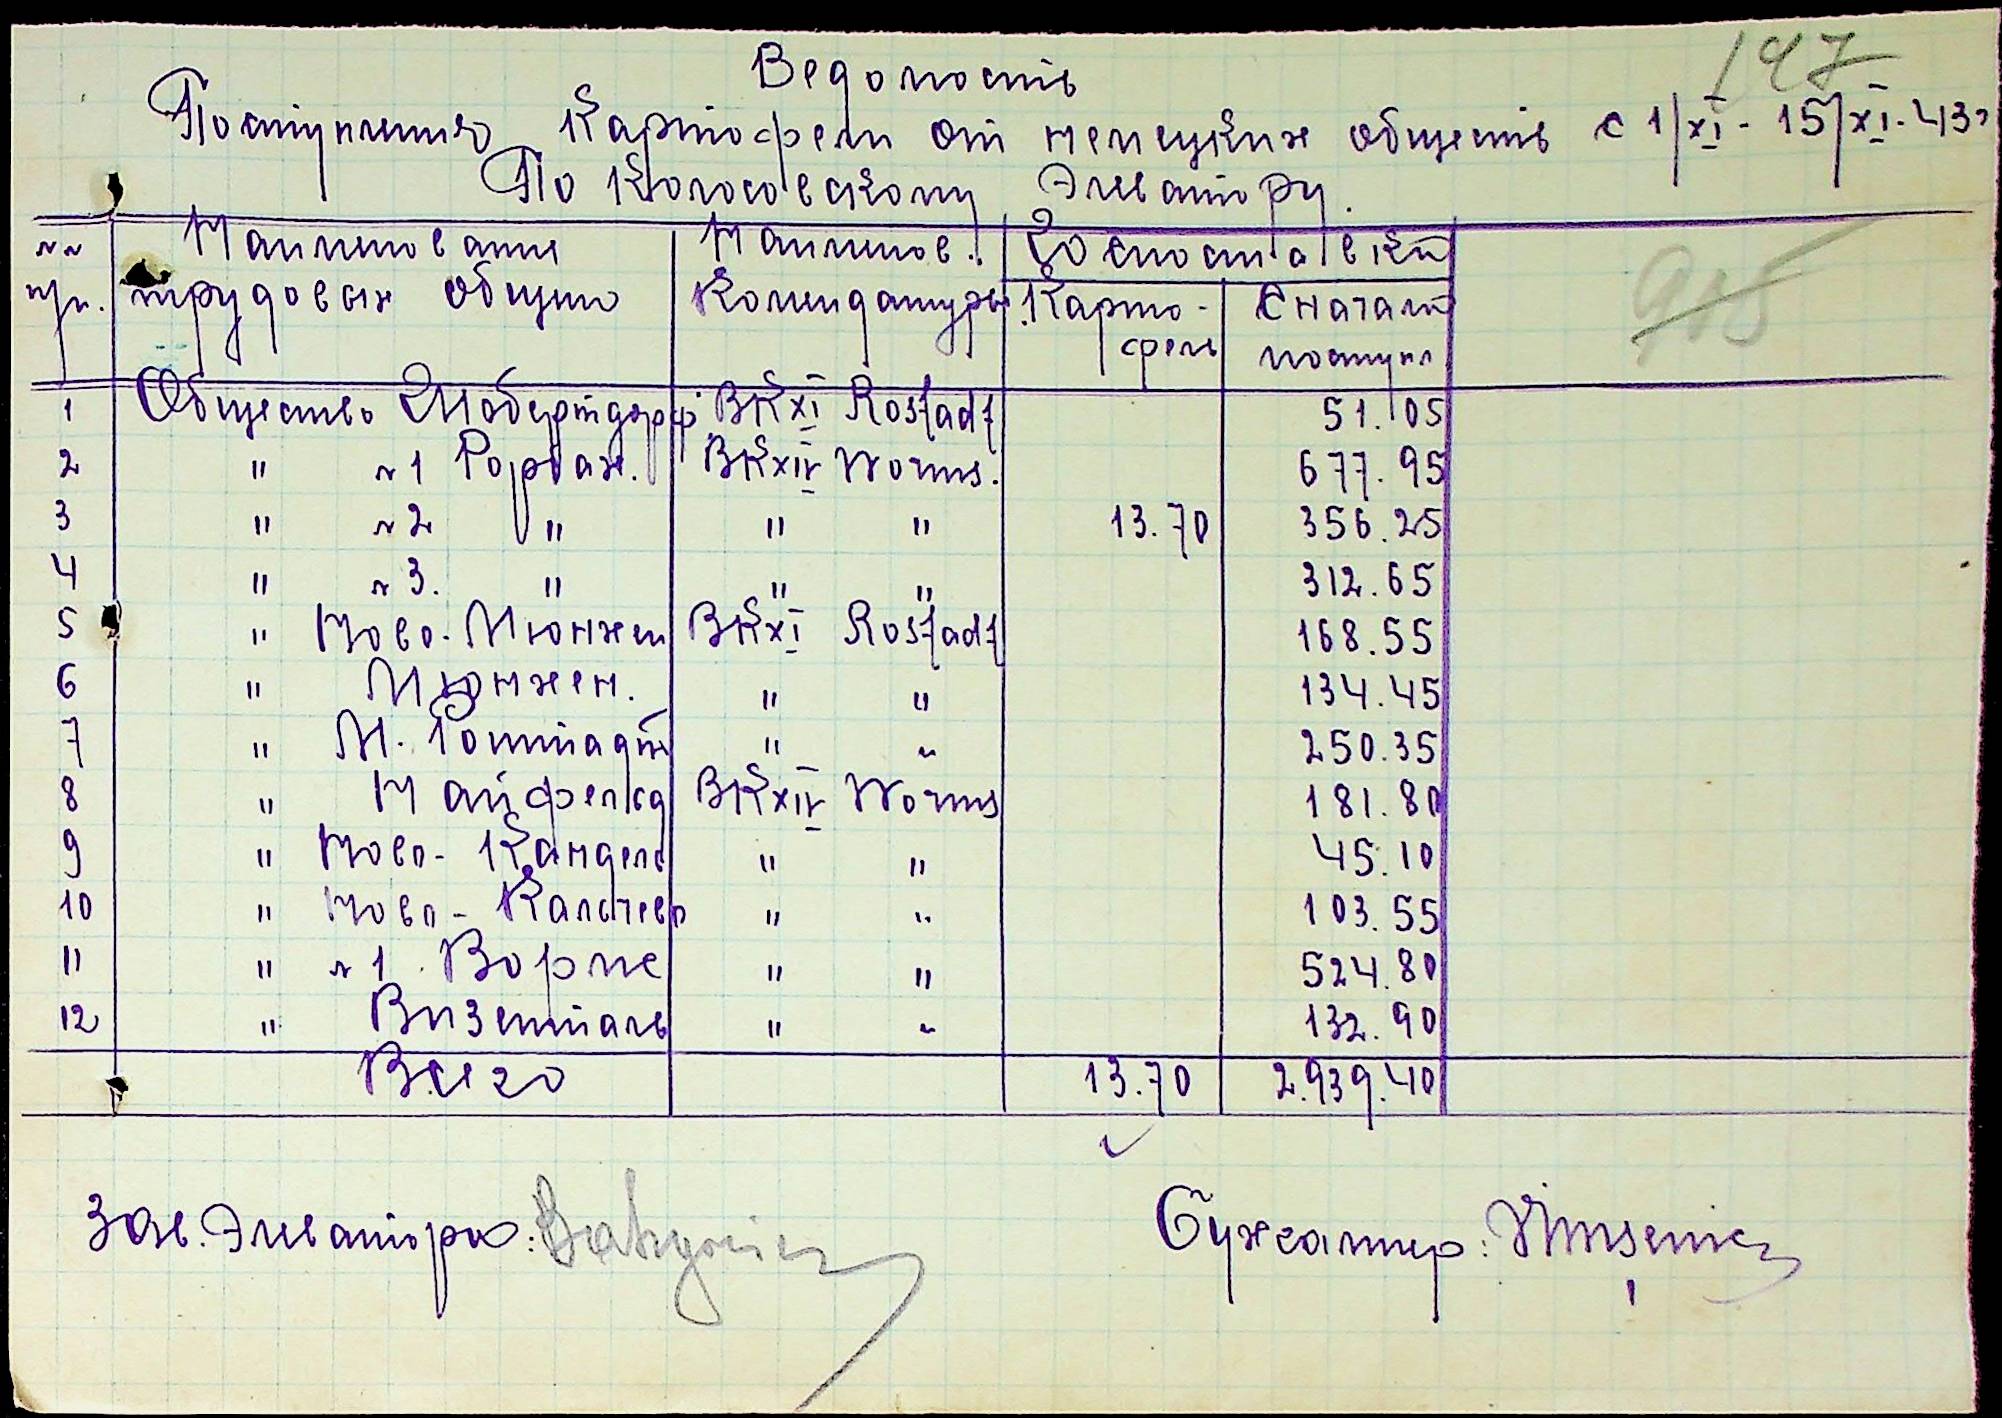 147
Ведомость
Поступления Картофели от немецких обществ с 1/XI - 15/XI-43г
По Колосовскому Элеватору.
915
№№ Наименования Наименов. Госпоставки
п/п. трудовых общин Комендатуры Карто- С начала
фель поступл
1 Общество Шобертдорф ВКXI Rostadt 51.05
2 " №1 Рорбах. ВКXIV Worms. 677.95
3 " №2 " " " 13.70 356.25
4 " №3. " " " 312.65
5 " Ново-Мюнхен ВКXI Rostadt 168.55
6 " Мюнхен. " " 134.45
7 " М. Роштадт " " 250.35
8 " Найфельд ВКXIV Worms 181.80
9 " Ново-Кандель " " 45.10
10 " Ново- " " 103.55
11 " №1 Вормс " " 524.80
12 " Визенталь " " 132.90
Всего 13.70 2.939.40
Зав. Элеватора: Бухгалтер: